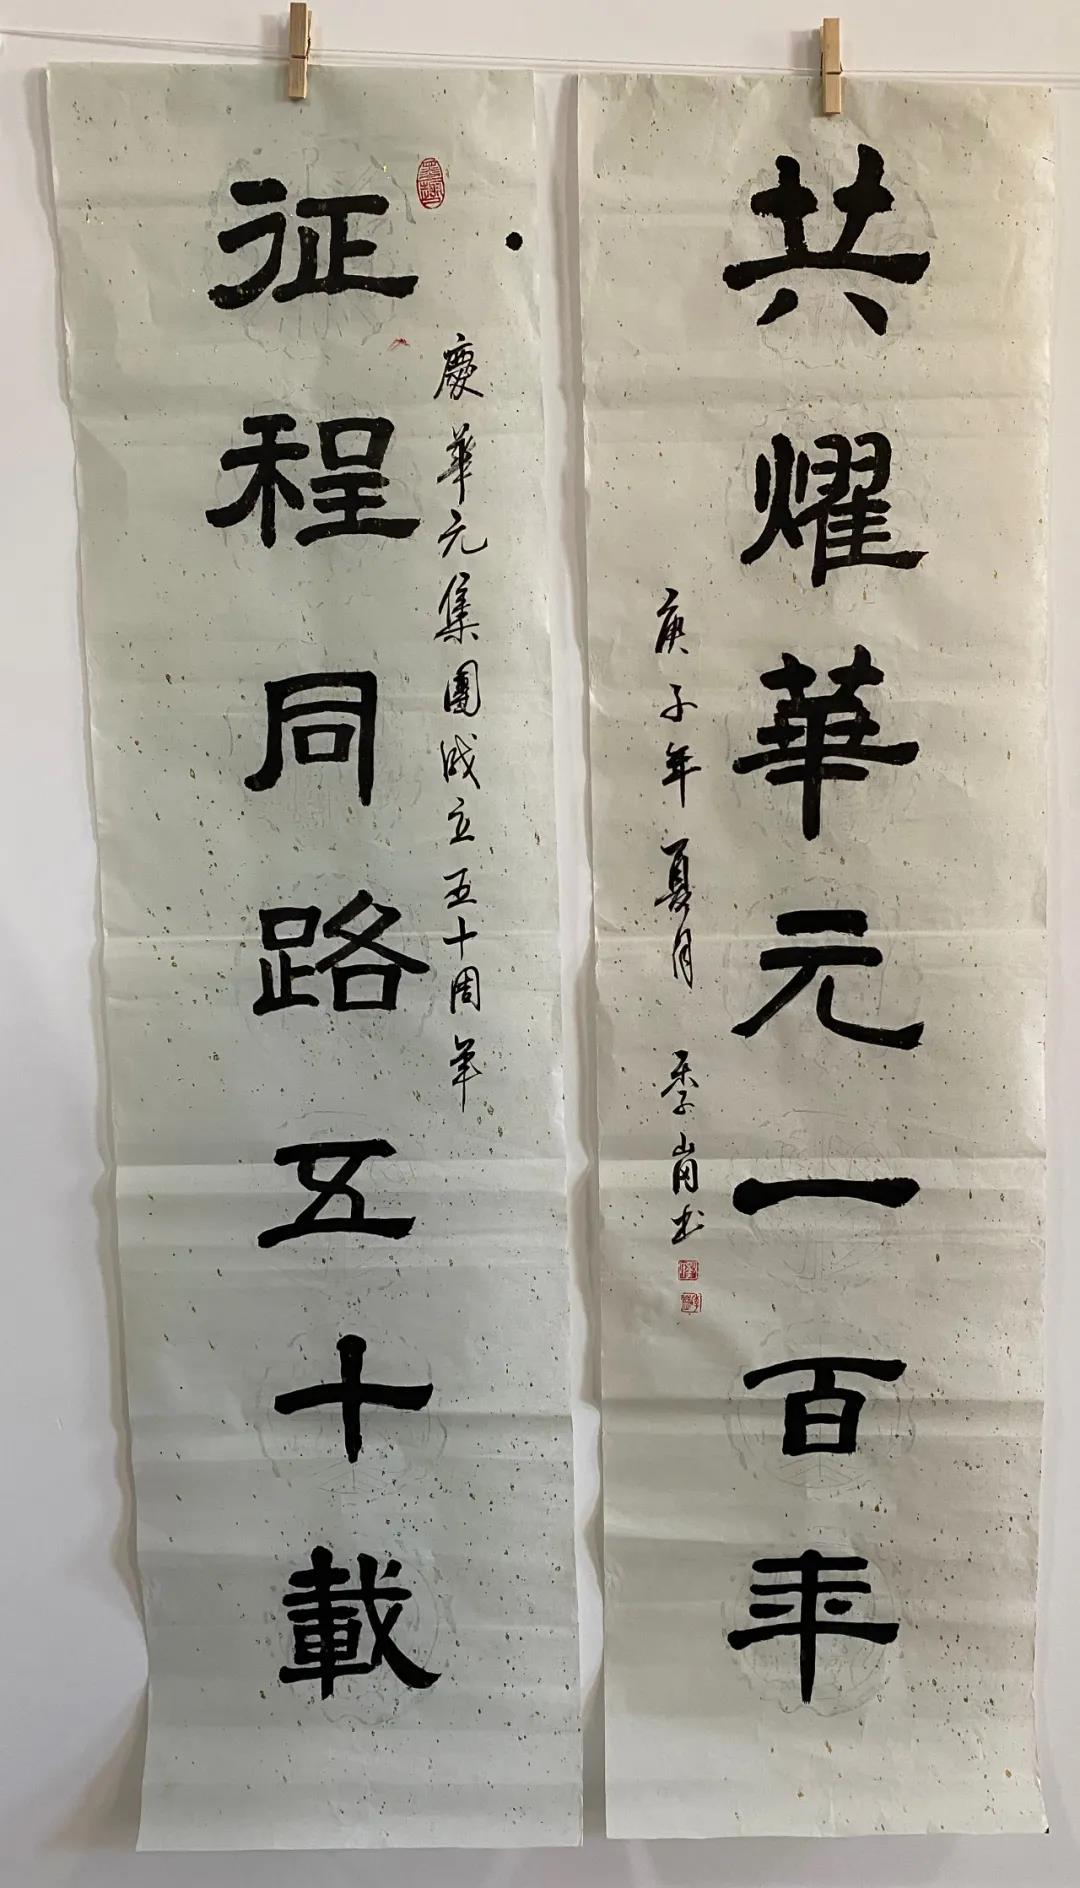 征程同路五十載
慶華元集團成立五十周年
共耀華元一百年
庚子年夏月 季岗书